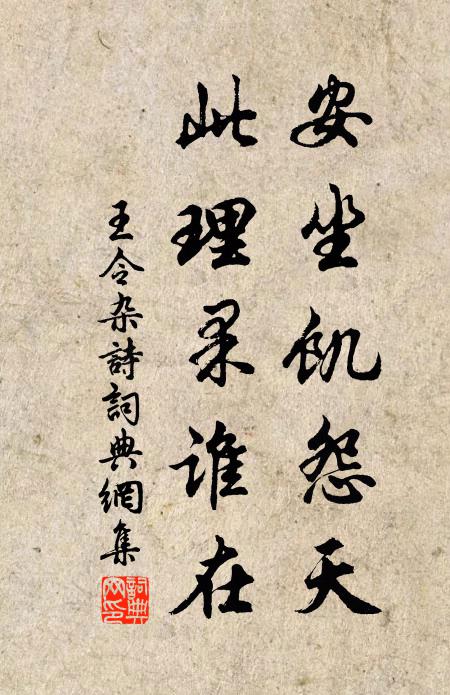 安坐飢怨天
此理果谁在
王令杂詩詞典網集
詞典网印